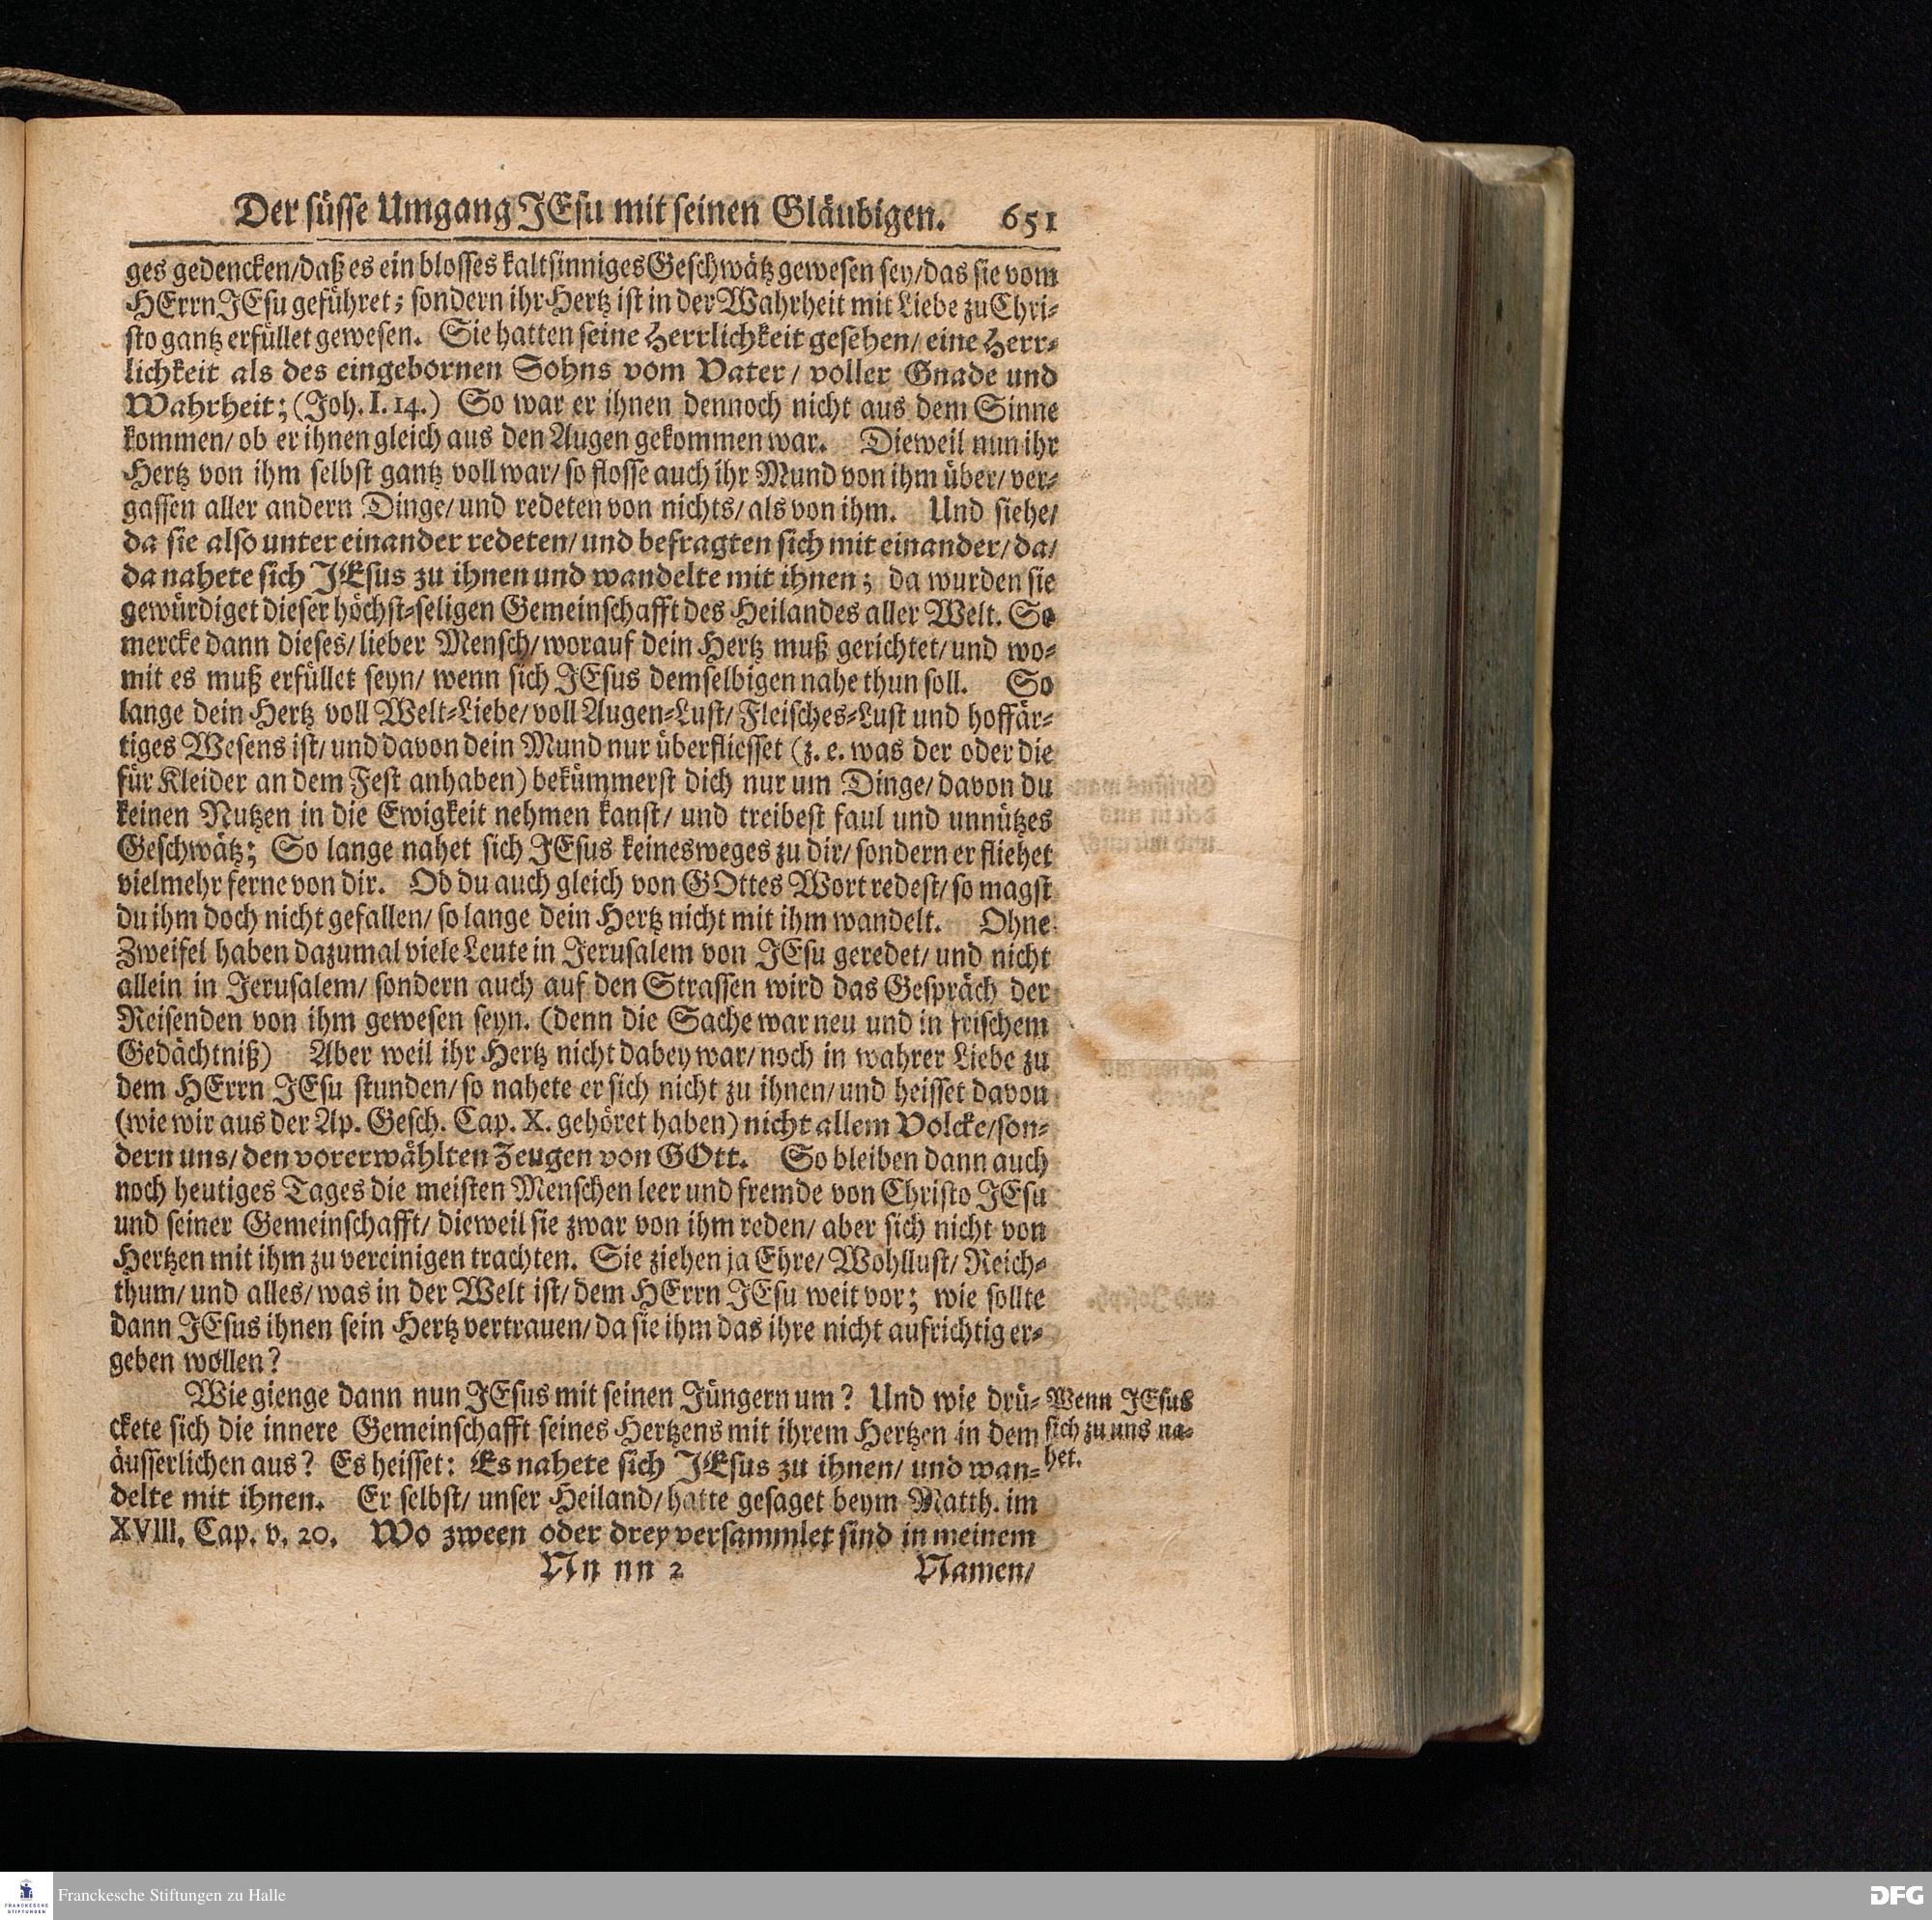 Der süsse Umgang JEsu mit seinen Gläubigen. 651
ges gedencken/daß es ein blosses kaltsinniges Geschwätz gewesen sey/das sie vom
HErrn JEsu geführet; sondern ihr Hertz ist in der Wahrheit mit Liebe zu Chri-
sto gantz erfüllet gewesen. Sie hatten seine Herrlichkeit gesehen/ eine Herr-
lichkeit als des eingebornen Sohns vom Vater/ voller Gnade und
Wahrheit; (Joh. I. 14.) So war er ihnen dennoch nicht aus dem Sinne
kommen/ ob er ihnen gleich aus den Augen gekommen war. Dieweil nun ihr
Hertz von ihm selbst gantz voll war/ so flosse auch ihr Mund von ihm über/ ver-
gassen aller andern Dinge/ und redeten von nichts/ als von ihm. Und siehe/
da sie also unter einander redeten/ und befragten sich mit einander/ da/
da nahete sich JEsus zu ihnen und wandelte mit ihnen; da wurden sie
gewürdiget dieser höchst-seligen Gemeinschafft des Heilandes aller Welt. So
mercke dann dieses/ lieber Mensch/ worauf dein Hertz muß gerichtet/ und wo-
mit es muß erfüllet seyn/ wenn sich JEsus demselbigen nahe thun soll. So
lange dein Hertz voll Welt-Liebe/ voll Augen-Lust/ Fleisches-Lust und hoffär-
tiges Wesens ist/ und davon dein Mund nur überfliesset (z. e. was der oder die
für Kleider an dem Fest anhaben) bekümmerst dich nur um Dinge/ davon du
keinen Nutzen in die Ewigkeit nehmen kanst/ und treibest faul und unnützes
Geschwätz; So lange nahet sich JEsus keinesweges zu dir/ sondern er fliehet
vielmehr ferne von dir. Ob du auch gleich von GOttes Wort redest/ so magst
du ihm doch nicht gefallen/ so lange dein Hertz nicht mit ihm wandelt. Ohne
Zweifel haben dazumal viele Leute in Jerusalem von JEsu geredet/ und nicht
allein in Jerusalem/ sondern auch auf den Strassen wird das Gespräch der
Reisenden von ihm gewesen seyn. (denn die Sache war neu und in frischem
Gedächtniß) Aber weil ihr Hertz nicht dabey war/ noch in wahrer Liebe zu
dem HErrn JEsu stunden/ so nahete er sich nicht zu ihnen/ und heisset davon
(wie wir aus der Ap. Gesch. Cap. X. gehöret haben) nicht allem Volcke/ son-
dern uns/ den vorerwählten Zeugen von GOtt. So bleiben dann auch
noch heutiges Tages die meisten Menschen leer und fremde von Christo JEsu
und seiner Gemeinschafft/ dieweil sie zwar von ihm reden/ aber sich nicht von
Hertzen mit ihm zu vereinigen trachten. Sie ziehen ja Ehre/ Wohllust/ Reich-
thum/ und alles/ was in der Welt ist/ dem HErrn JEsu weit vor; wie sollte
dann JEsus ihnen sein Hertz vertrauen/ da sie ihm das ihre nicht aufrichtig er-
geben wollen?
Wie gienge dann nun JEsus mit seinen Jüngern um? Und wie drü-
ckete sich die innere Gemeinschafft seines Hertzens mit ihrem Hertzen in dem
äusserlichen aus? Es heisset: Es nahete sich JEsus zu ihnen/ und wan-
delte mit ihnen. Er selbst/ unser Heiland/ hatte gesaget beym Matth. im
XVIII. Cap. v. 20. Wo zween oder drey versammlet sind in meinem
Wenn JEsus
sich zu uns na-
het.
Nn nn 2 Namen/
Franckesche Stiftungen zu Halle
FRANCKESCHE
STIFTUNGEN
DFG